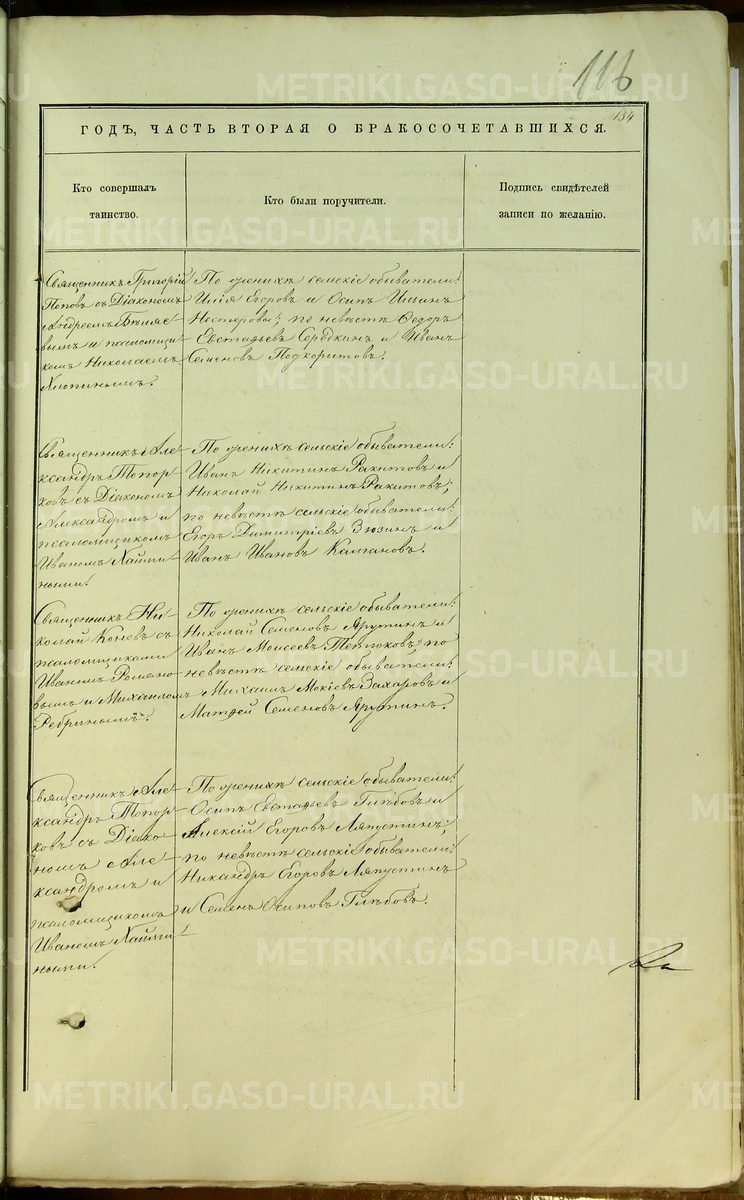 116
134
ГОДЪ, ЧАСТЬ ВТОРАЯ О БРАКОСОЧЕТАВШИХСЯ.
Кто совершалъ
таинство.
Кто были поручители.
Подпись свидѣтелей
записи по желанію.
Священникъ Григорій
Поповъ съ Діакономъ
Андреемъ Бѣляе-
вымъ и псаломщи-
комъ Николаемъ
Хлопинымъ.
По женихѣ сельскіе обыватели:
Илія Егоровъ и Осипъ Ильинъ
Нестеровы; по невѣстѣ Ѳедоръ
Евстафьевъ Сердкинъ и Иванъ
Семеновъ Подкорытовъ.
Священникъ Але-
ксандръ Топор-
ковъ съ Діакономъ
Александромъ и
псаломщикомъ
Иваномъ Хлопи-
ными.
По женихѣ сельскіе обыватели:
Иванъ Никитинъ Ракитовъ и
Николай Никитинъ Ракитовъ;
по невѣстѣ сельскіе обыватели:
Егоръ Димитріевъ Зюзинъ и
Иванъ Ивановъ Калгановъ.
Священникъ Ни-
колай Коневъ съ
псаломщиками
Иваномъ Романо-
вымъ и Михаиломъ
Ребринымъ.
По женихѣ сельскіе обыватели:
Николай Семеновъ Ярутинъ и
Иванъ Моисеевъ Тетюковъ, по
невѣстѣ сельскіе обыватели:
Михаилъ Мокіевъ Захаровъ и
Матѳей Семеновъ Ярутинъ.
Священникъ Але-
ксандръ Топор-
ковъ съ Діако-
номъ Але-
ксандромъ и
псаломщикомъ
Иваномъ Хлопи-
ными.
По женихѣ сельскіе обыватели:
Осипъ Евстафьевъ Глѣбовъ и
Алексій Егоровъ Ляпустинъ;
по невѣстѣ сельскіе обыватели:
Никандръ Егоровъ Ляпустинъ
и Семенъ Осиповъ Глѣбовъ.
METRIKI.GASO-URAL.RU